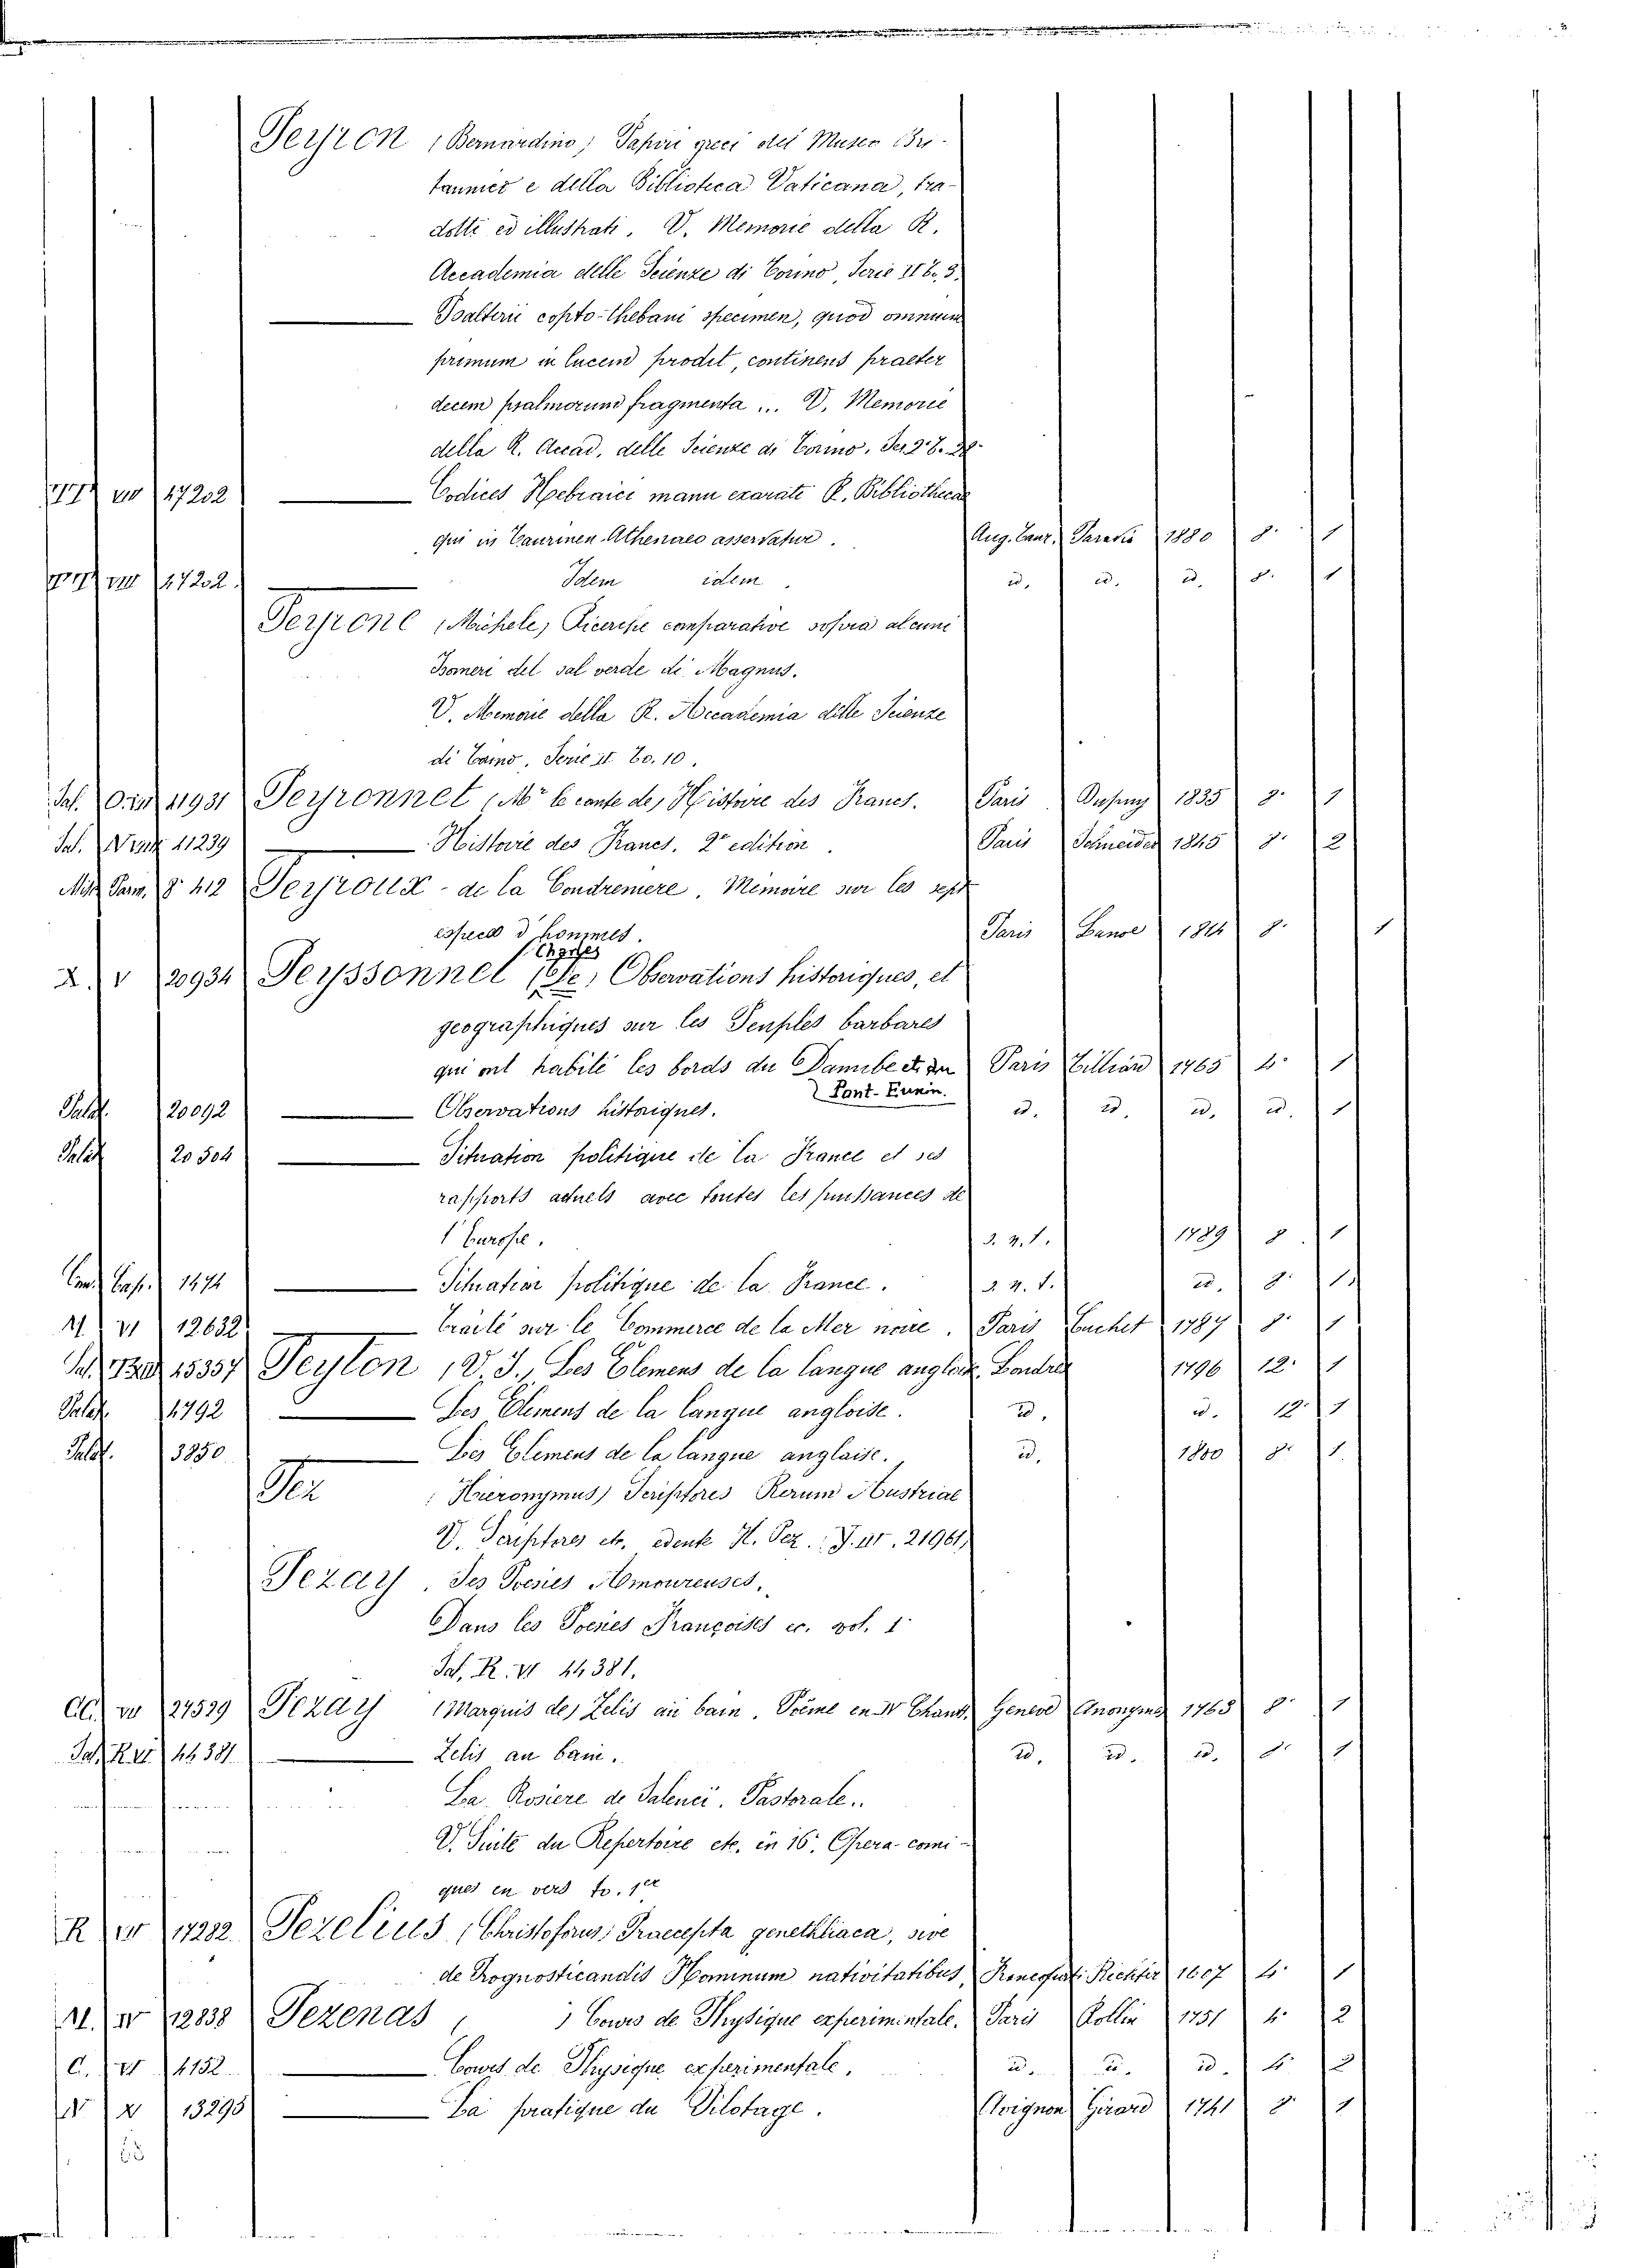 Peyron (Bernardino) Papiri greci del Museo Bri-
tannico e della Biblioteca Vaticana, tra-
dotti ed illustrati. V. Memorie della R.
Accademia delle Scienze di Torino, Serie II to. 3.
Psalterii copto-thebani specimen, quod omnium
primum in lucem prodit, continens praeter
decem psalmorum fragmenta ... V. Memorie
della R. Accad. delle Scienze di Torino. Ser. 2.
VII 47202 Codices Hebraici manu exarati R. Bibliothecae
qui in Taurinen. Athenaeo asservatur. Aug. Taur. Paravia 1880 8. 1
VII 47202 Idem idem. id. id. id. 8. 1
Peyrone (Michele) Ricerche comparative sopra alcuni
Isomeri del sal verde di Magnus.
V. Memorie della R. Accademia delle Scienze
di Torino. Serie II. to. 10.
Sal. 41931 Peyronnet (Mr le conte de) Histoire des Francs. Paris 1835 8. 1
Sal. 41239 Histoire des Francs. 2e edition. Paris Schneider 1845 8. 2
8. 412 Peyroux - de la Condreniere. Mémoire sur les sept
especes d'hommes. Paris 8. 1
X. V 20934 Peyssonnel (Charles de) Observations historiques, et
geographiques sur les Peuples barbares
qui ont habité les bords du Danube et du Paris Tilliard 1765 4. 1
Pont-Euxin.
Palat. 20092 Observations historiques. id. id. id. id. 1
Palat. 20504 Situation politique de la France et ses
rapports actuels avec toutes les puissances de
l'Europe. s. n. t. 1789 8. 1
Cap. 1474 Situation politique de la France. s. n. t. id. 8. 1
VI 12632 Traité sur le Commerce de la Mer noire. Paris Cuchet 1787 8. 1
15357 Peyton (V. J.) Les Elemens de la langue angloise. Londres 1796 12. 1
Palat. 4792 Les Elemens de la langue angloise. id. id. 12. 1
Palat. 3850 Les Elemens de la langue anglaise. id. 1800 8. 1
Pez (Hieronymus) Scriptores Rerum Austriac
V. Scriptores etc. edente H. Pez. 21961)
Pezay. Ses Poesies Amoureuses.
Dans les Poesies Françoises ec. vol. 1
Sal. R. VI 44381.
VII 27539 Pezay (Marquis de) Zelis au bain. Poëme en IV Chants. Geneve Anonyme 1763 8. 1
Sal. R. VI 44381 Zelis au bain. id. id. id. 8. 1
La Rosiere de Salenci. Pastorale.
V. Suite du Repertoire etc. in 16. Opera-comi-
ques en vers to. 1er
R IV 17282 Pezelius (Christoforus) Praecepta genethliaca, sive
de Prognosticandis Hominum nativitatibus, Richter 1607 4. 1
M. IV 12838 Pezenas ( ) Cours de Physique experimintale. Paris Rollin 1751 4. 2
C. VI 4152 Cours de Physique experimentale. id. id. id. 4. 2
X 13295 La pratique du Pilotage. Avignon Girard 1741 8. 1